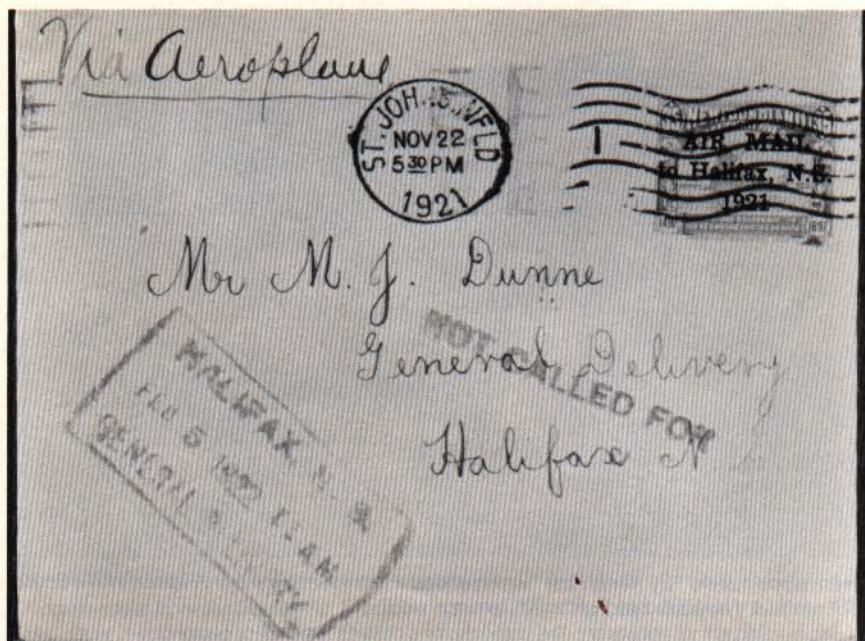 Via Aeroplane
ST. JOHN'S, NFLD
NOV 22
5 30 PM
1921
AIR MAIL
to Halifax, N.S.
1921
Mr M. J. Dunne
General Delivery
Halifax N
NOT CALLED FOR
HALIFAX, N.S.
FEB 5 1922 AM
GENERAL DELIVERY